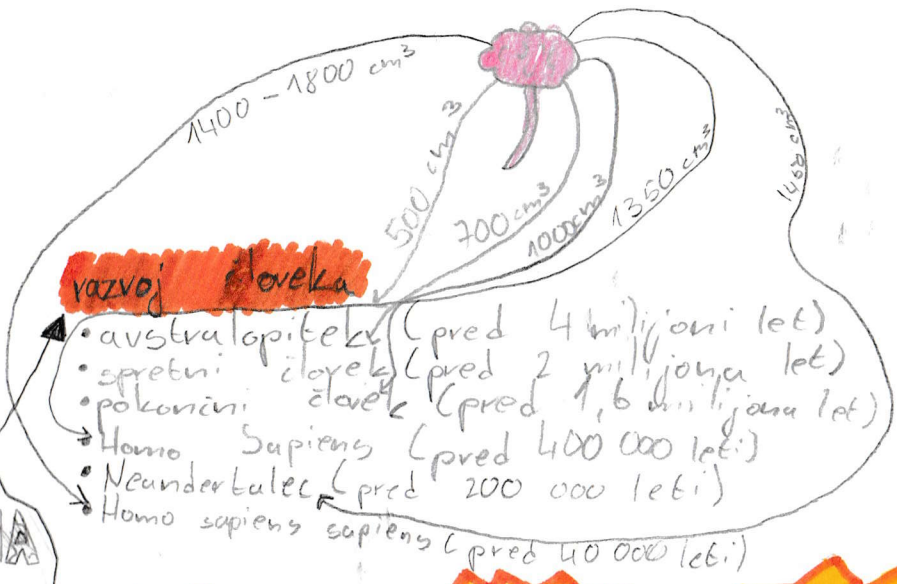 1400 - 1800 cm³
500 cm³
700 cm³
1000 cm³
1350 cm³
1450 cm³
razvoj človeka
• avstralopitek (pred 4 milijoni let)
• spretni človek (pred 2 milijona let)
• pokončni človek (pred 1,6 milijona let)
• Homo Sapiens (pred 400 000 leti)
• Neandertalec (pred 200 000 leti)
• Homo sapiens sapiens (pred 40 000 leti)